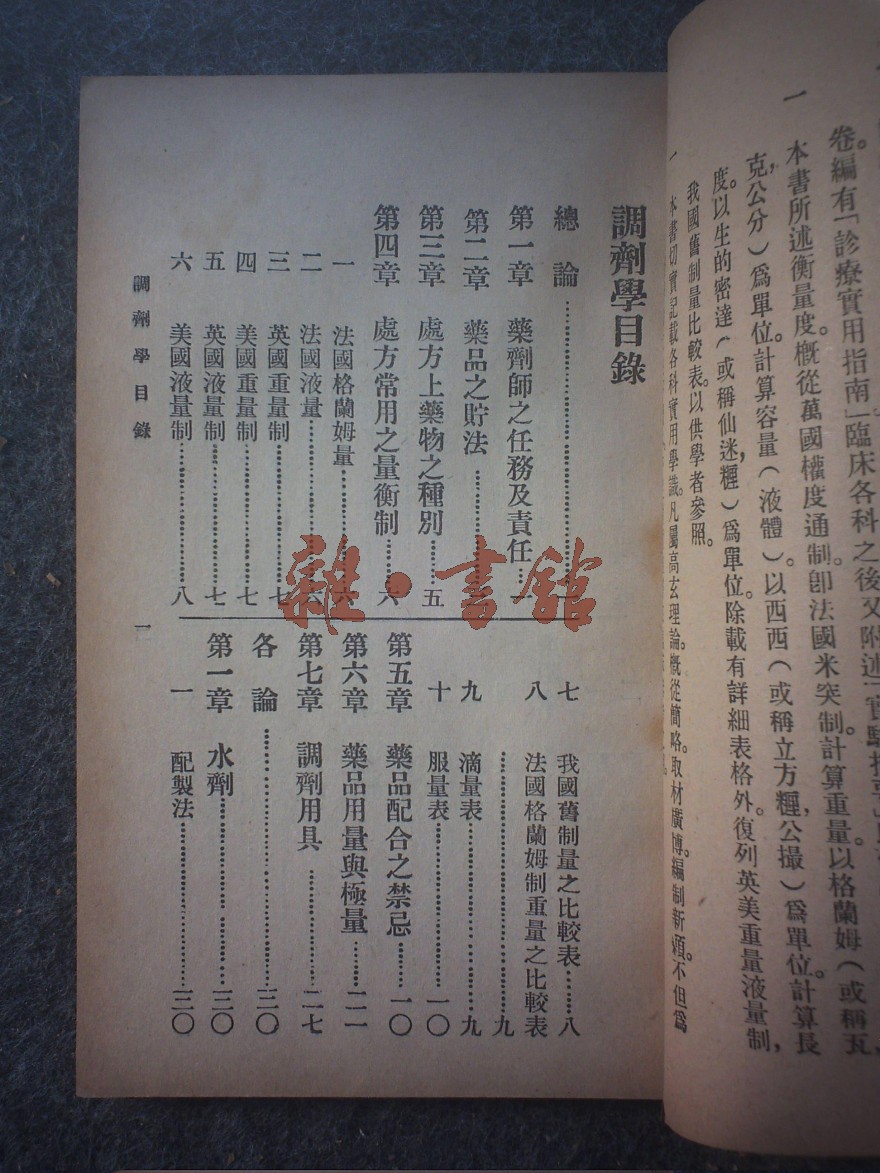 卷。編有「診療實用指南」臨床各科之後又附述
一 本書所述衡量度。概從萬國權度通制。卽法國米突制。計算重量。以格蘭姆(或稱瓦,
克,公分)爲單位。計算容量(液體)。以西西(或稱立方糎,公撮)爲單位。計算長
度。以生的密達(或稱仙迷,糎)爲單位。除載有詳細表格外。復列英美重量液量制,
我國舊制量比較表。以供學者參照。
一 本書切實記載各科實用學識。凡屬高玄理論。概從簡略。取材廣博。編制新穎。不但爲
調劑學目錄
總論
第一章 藥劑師之任務及責任……一
第二章 藥品之貯法
第三章 處方上藥物之種別……五
第四章 處方常用之量衡制……六
一 法國格蘭姆量……六
二 法國液量……六
三 英國重量制……七
四 美國重量制……七
五 英國液量制……七
六 美國液量制……八
七 我國舊制量之比較表……八
八 法國格蘭姆制重量之比較表
……九
九 滴量表……九
十 服量表……一〇
第五章 藥品配合之禁忌……一〇
第六章 藥品用量與極量……二一
第七章 調劑用具……二七
各論……三〇
第一章 水劑……三〇
一 配製法……三〇
調劑學目錄
一
雜·書館